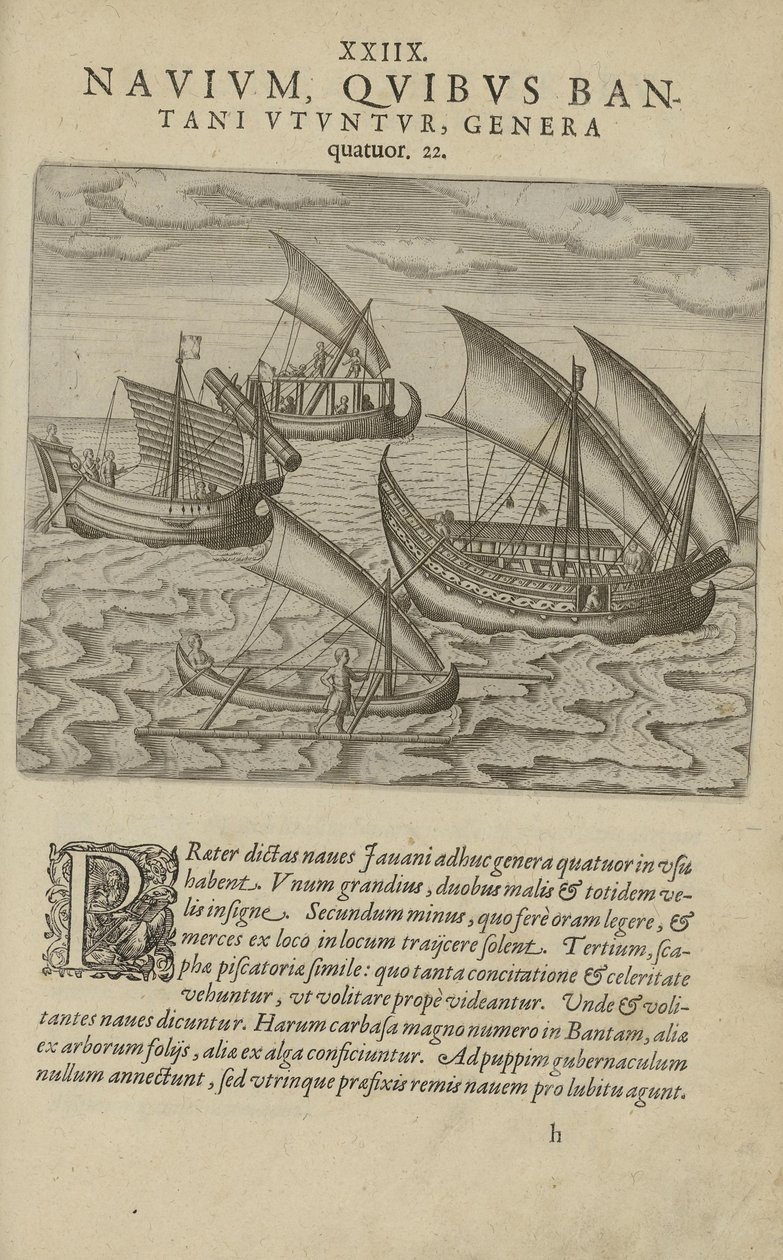 XXIIX.
NAVIVM, QVIBVS BAN-
TANI VTVNTVR, GENERA
quatuor. 22.
PRæter dictas naues Jauani adhuc genera quatuor in vſu
habent. Vnum grandius, duobus malis & totidem ve-
lis inſigne. Secundum minus, quo ferè oram legere, &
merces ex loco in locum traijcere ſolent. Tertium, ſca-
phæ piſcatoriæ ſimile: quo tanta concitatione & celeritate
vehuntur, vt volitare propè videantur. Unde & voli-
tantes naues dicuntur. Harum carbaſa magno numero in Bantam, aliæ
ex arborum folijs, aliæ ex alga conficiuntur. Ad puppim gubernaculum
nullum annectunt, ſed vtrinque præfixis remis nauem pro lubitu agunt.
h